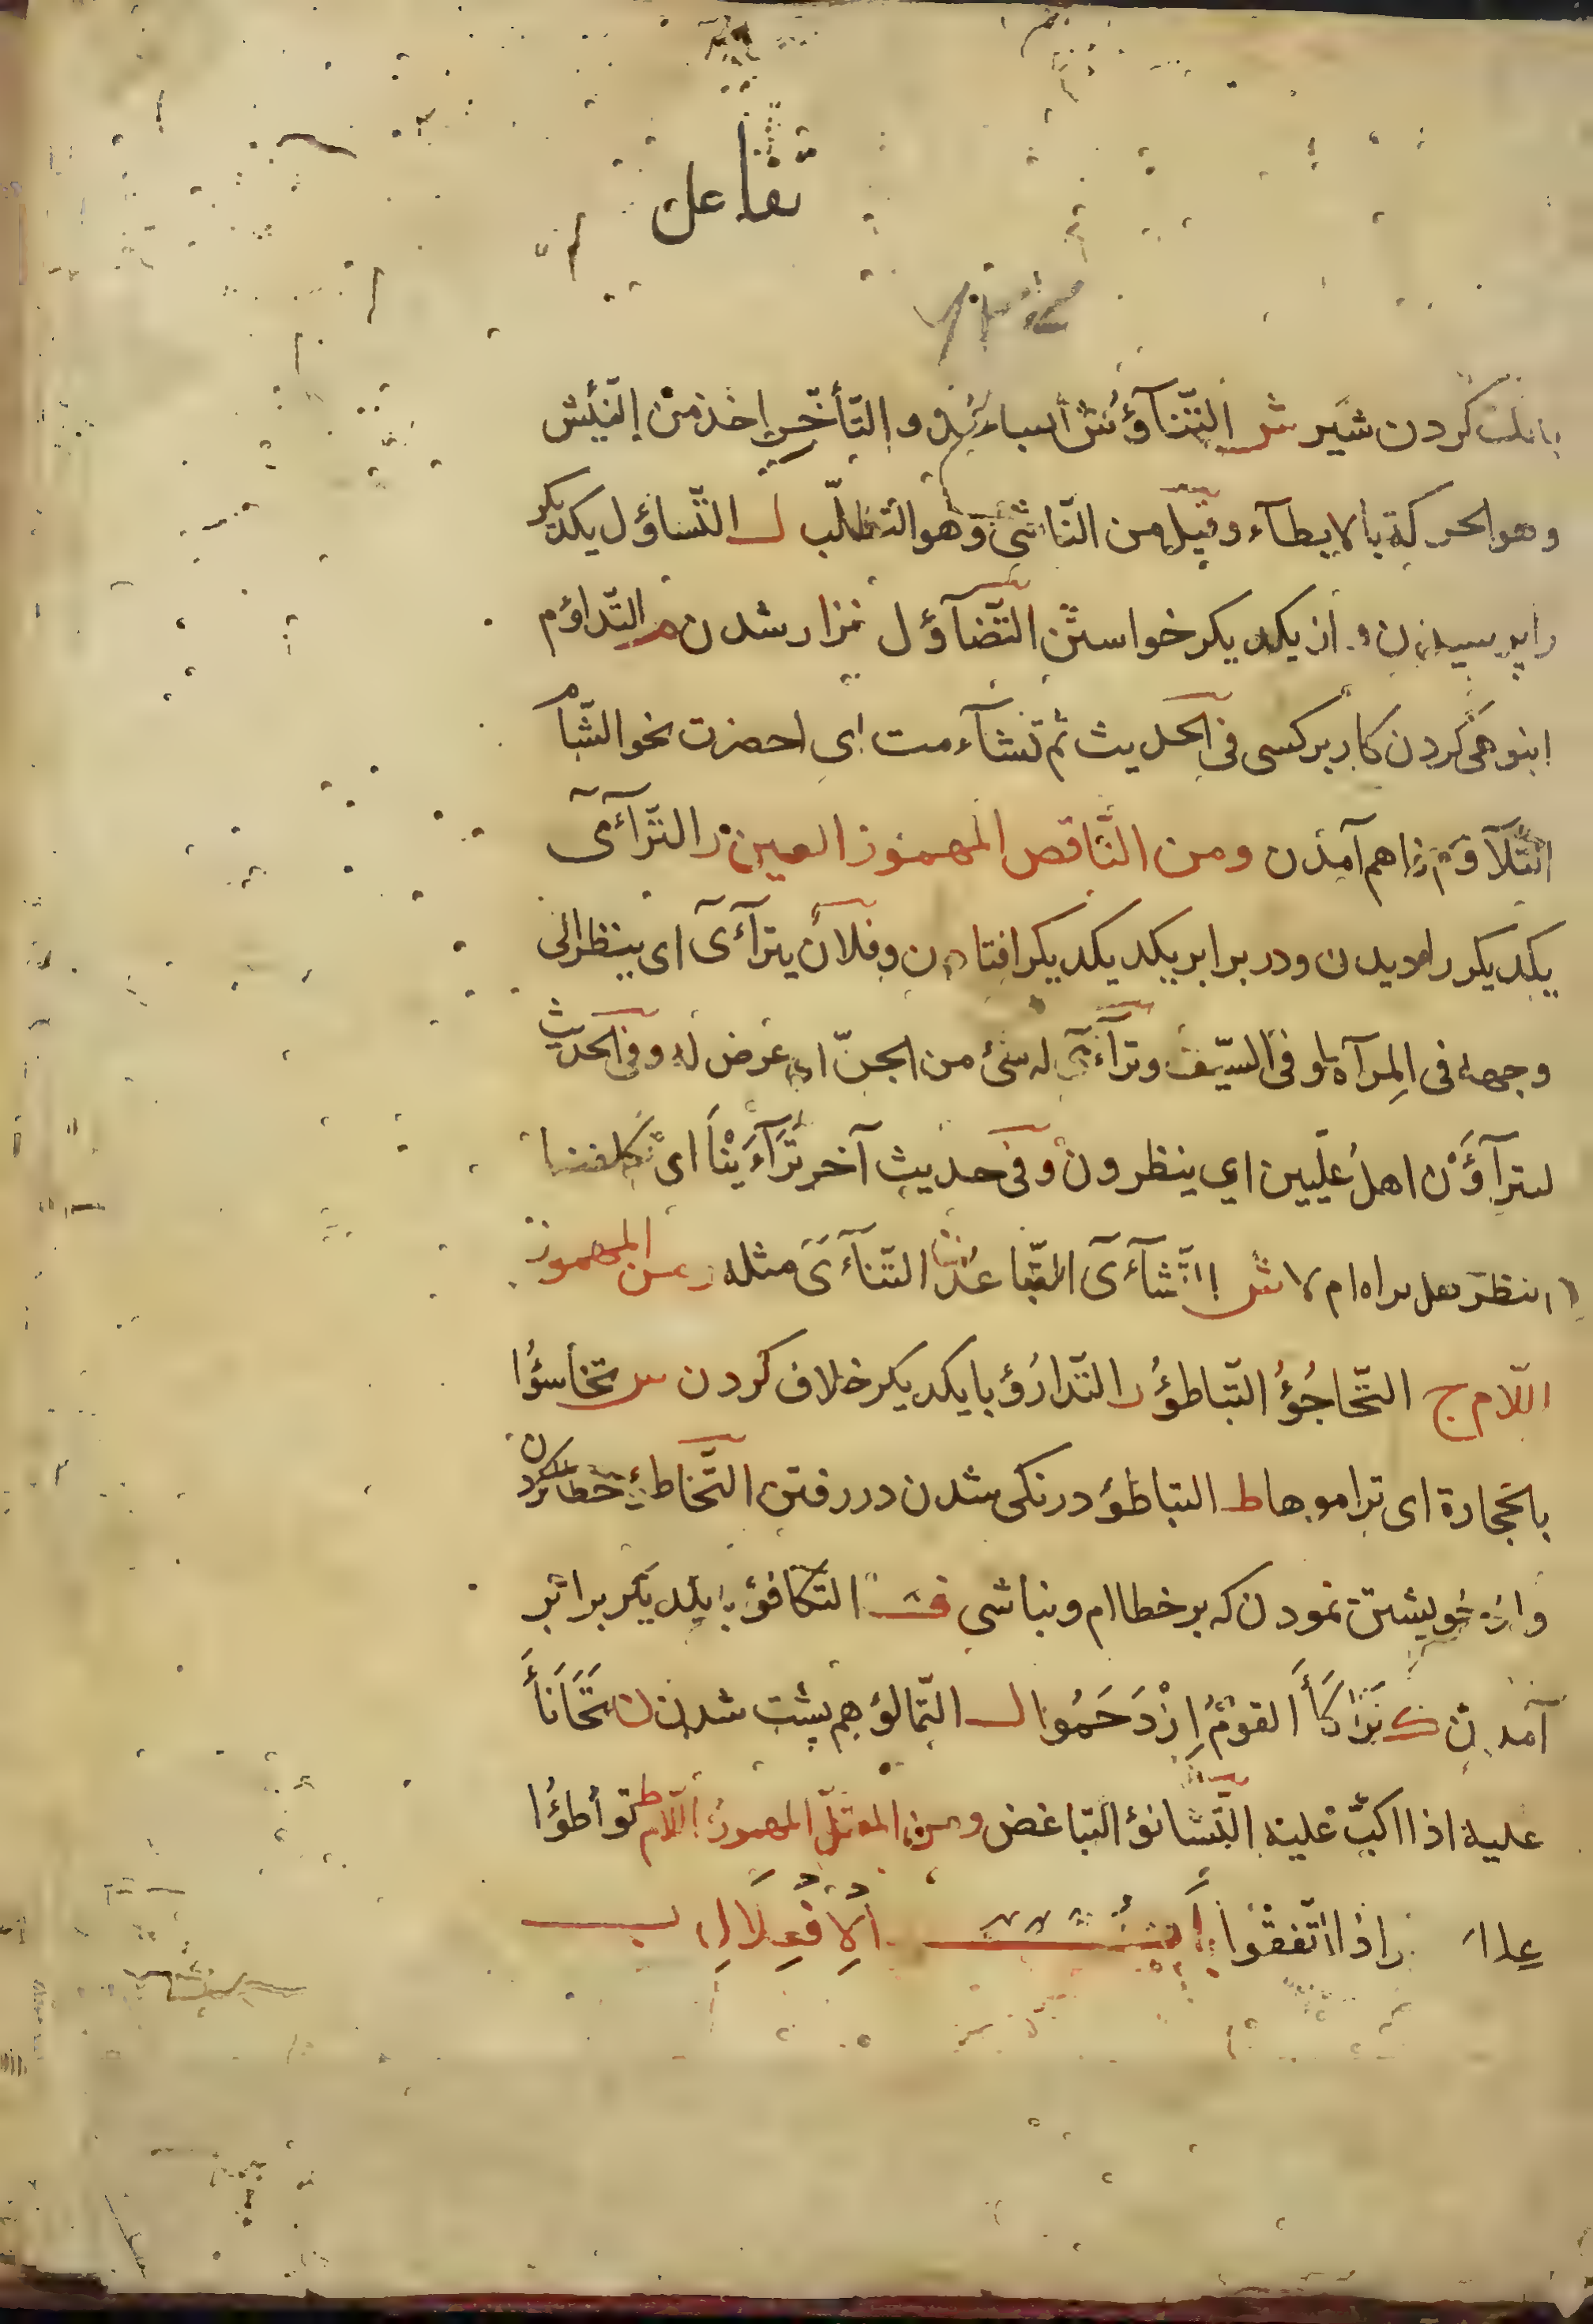 تفاعل
بانگ کردن شیر ش التَّنَآؤُش والتأخّر اخذ من النئیش
وهو الحركة بالابطآء وقیل من النّاشئ وهو التطلّب ل التّساؤل یکدیکر
را پرسیدن و از یکدیکر خواستن التّضآؤل نزار شدن م التّداؤم
انبوهی کردن کار بر کسی فی الحدیث ثم تشآءمت ای احضرت نحو الشّأم
التّلآؤم فراهم آمدن ومن النّاقص المهموز العین ر التّرآئی
یکدیکر را دیدن ودر برابر یکدیکر افتادن وفلان یترآءی ای ینظر الی
وجهه فی المِرآة او فی السّیف وترآءی له شئ من الجنّ ای عرض له وفی الحدیث
لیترآؤن اهل علّیین ای ینظرون وفی حدیث آخر ترآءَیْنا ای تکلّفنا
النظر هل نراه ام لا ش التّشآءی التّباعد ن التّنآءی مثله ومن المهموز
اللّام ج التّخاجُؤُ التّباطؤُ ر التّدارُؤ با یکدیکر خلاف کردن س تخاسؤُا
بالحجارة ای تراموا بها ط التباطؤ درنکی شدن در رفتن التّخاطئ خطا کردن
واز خویشتن نمودن که بر خطاام ونباشی ف التّکافؤ با یکدیکر برابر
آمدن ک تَزَاكَأَ القومُ اِزْدَحَمُوا ل التّمالؤ هم پشت شدن ن تَحَانَأَ
علیه اذا اکبّ علیه التّشانؤ التباغض ومن المعتلّ المهموز اللّام ط تواطؤُا
علی اذا اتّفقوا الاِفْعِلَالِ